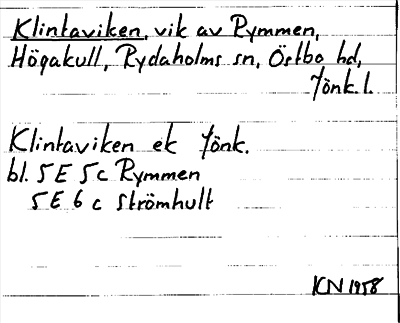 Klintaviken, vik av Rymmen,
Högakull, Rydaholms sn, Östbo hd,
Jönk. l.
Klintaviken ek Jönk.
bl. 5E 5c Rymmen
5E 6c Strömhult
KN 1958